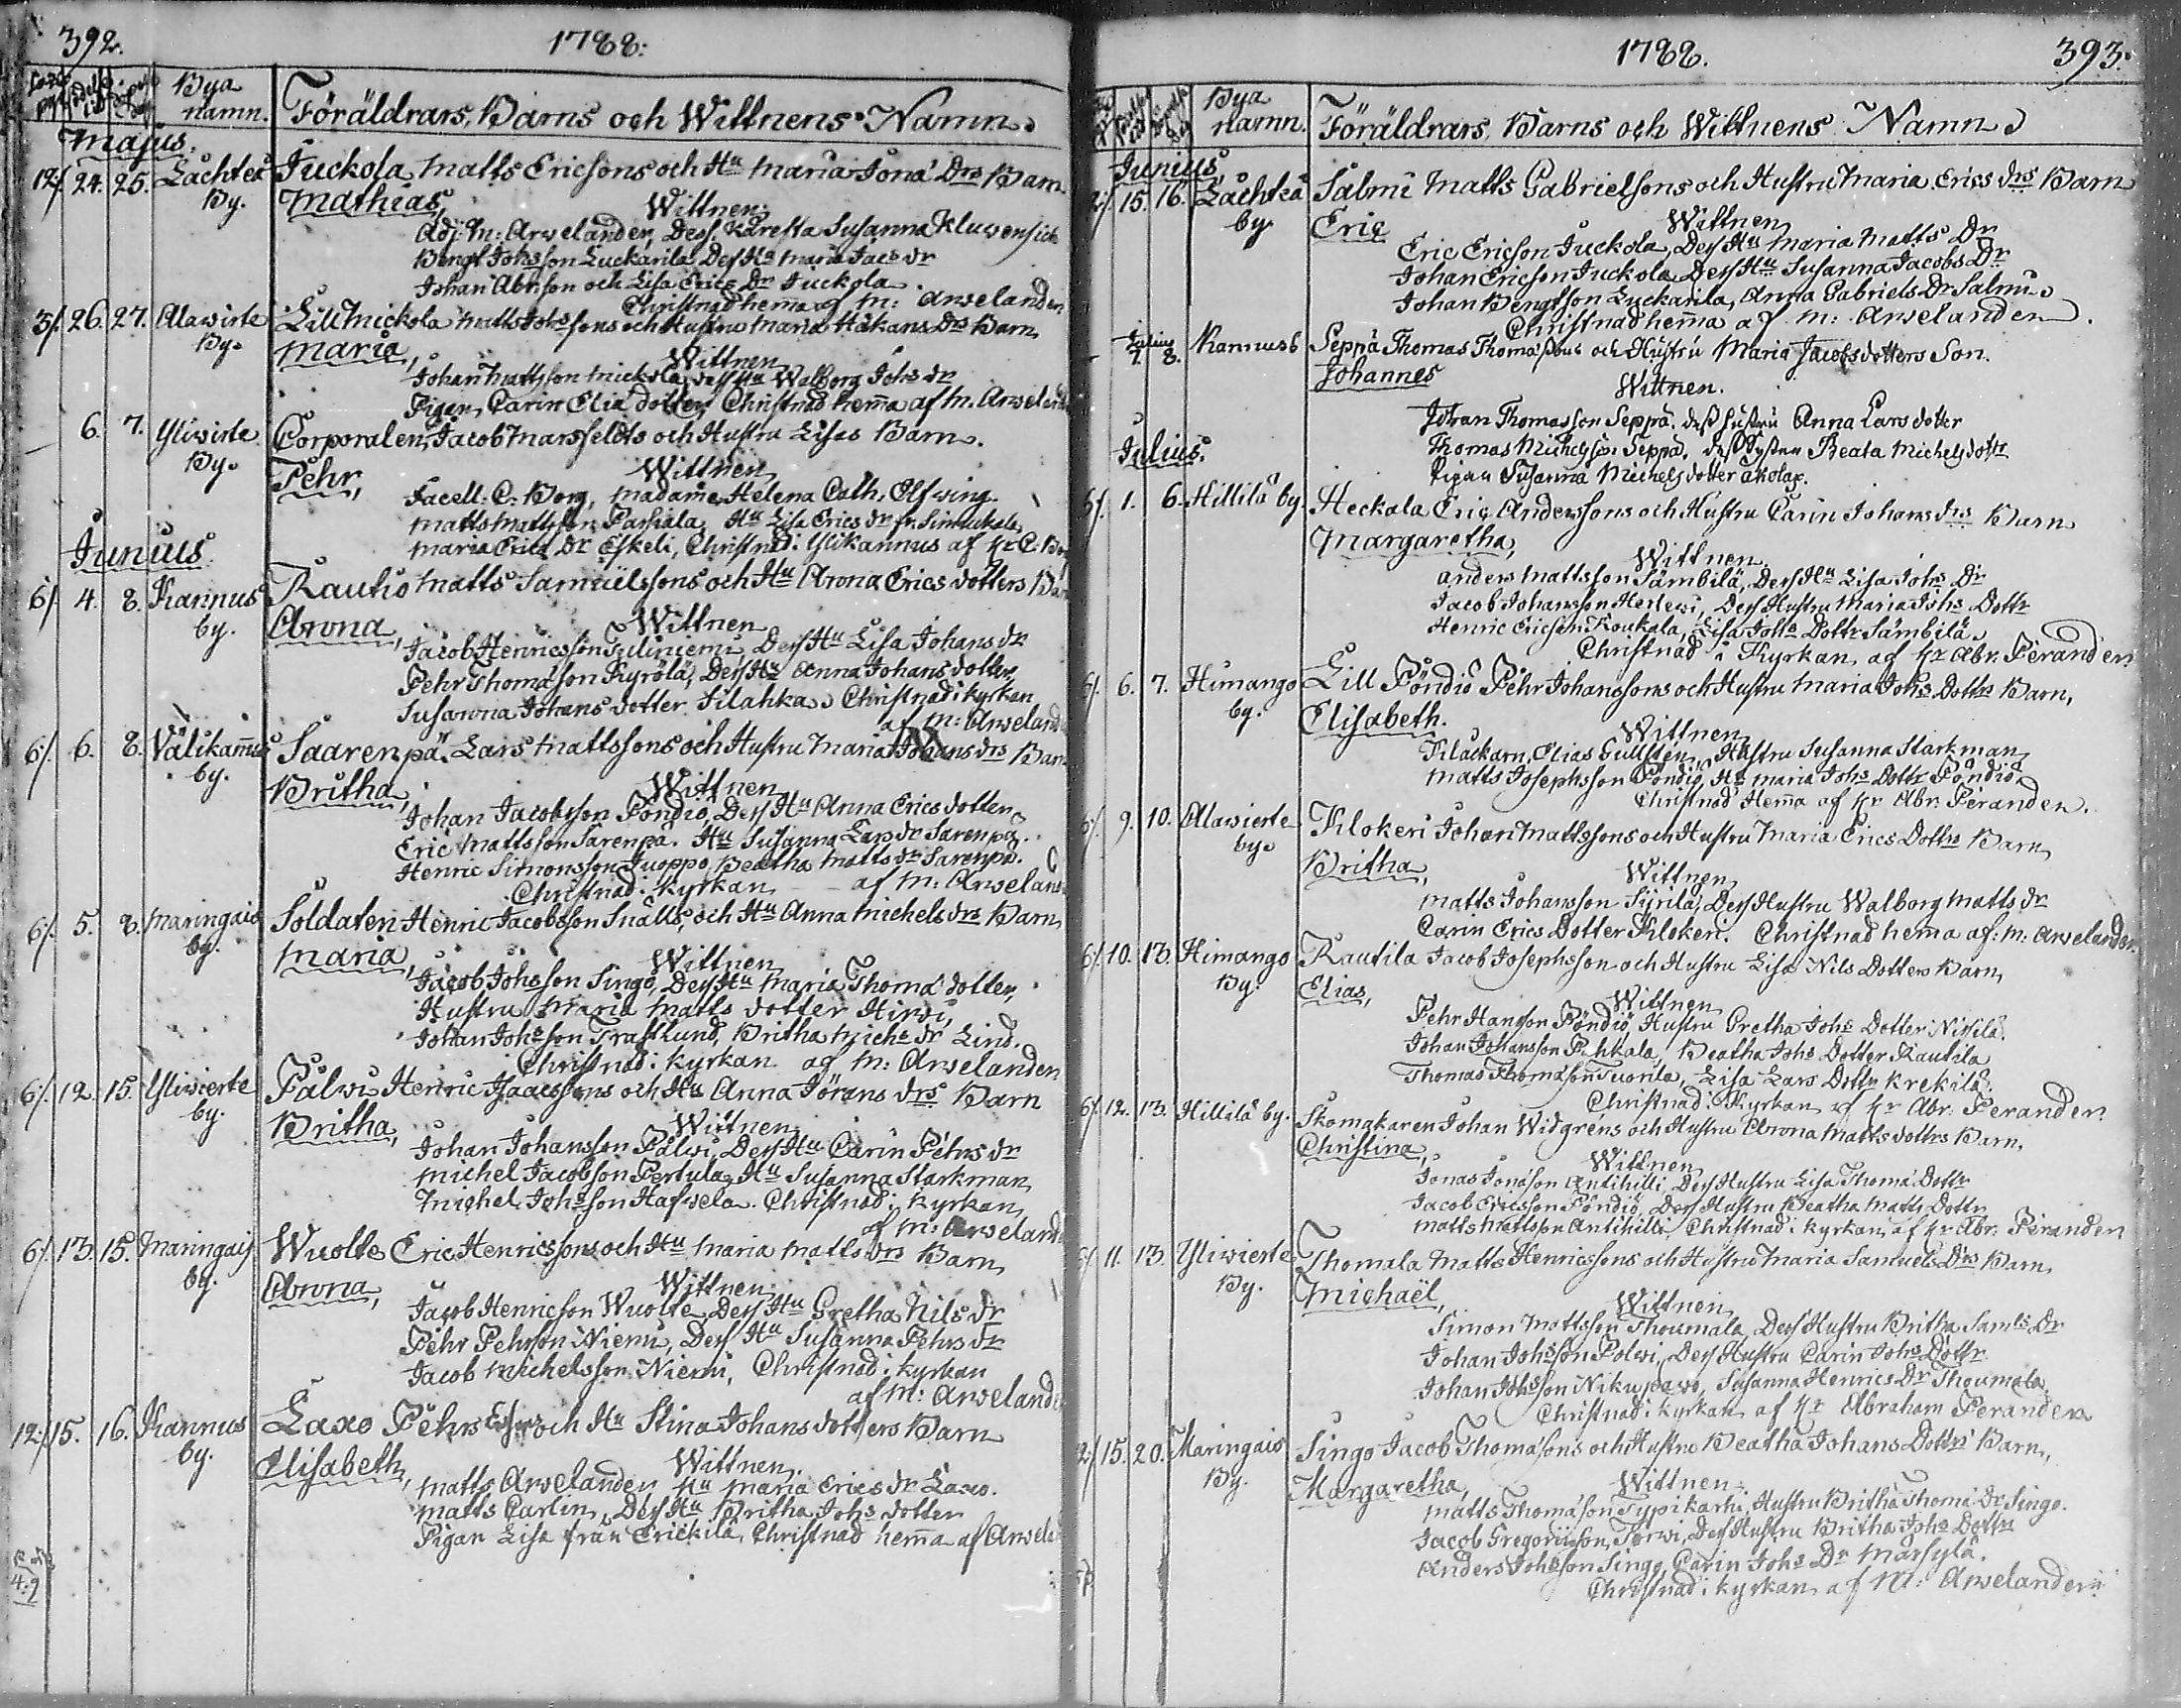 392.
1788:
Bya namn.
Föräldrars, Barns och Wittnens Namn
Majus.
12/. 24. 25. Lachtex By. Juckola Matts Ericsons och Hu Maria Jona Drs Barn
Mathias, Wittnen
Adj: M: Arwelander, Dess Käresta Susanna Kluwensich
Bengt Johsson Luckarila Dess Hu Maria Jacs dr
Johan Abrson och Lisa Erics Dr Juckola.
Christnad hema af M: Arwelander
3/. 26. 27. Alawirte By. Lill Nickola Matts Johssons och Hustru Maria Håkans Drs Barn
Maria, Wittnen
Johan Mattsson Nickola, dess Hu Walborg Johs dr
Pigan, Carin Elia dotter, Christnad hema af M. Arwelander
6. 7. Yliwirte By. Corporalen, Jacob Marsfeldts och Hustru Lisas Barn.
Pehr, Wittnen
Facell. C. Borg, Madame Helena Cath. Elfwing.
Matts Mattsson Parsiala, Hu Lisa Erics dr fr.
Maria Erics Dr Eskeli, Christnad i Ylikannus af Hr C. Borg
Junius
6/. 4. 8. Kannus by. Rautio Matts Samuelssons och Hu Anna Erics dotters Barn
Anna, Wittnen
Jacob Henricsson Tuliniemi, Dess Hu Lisa Johans dr
Pehr Thomason Kyrölä, Dess Hu Anna Johans dotter,
Susanna Johans dotter Filahka. Christnad i kyrkan
af M: Arwelander
6/. 6. 8. Välikannus by. Saarenpä. Lars Mattssons och Hustru Maria Johans drs Barn
Britha, Wittnen
Johan Jacobsson Pöndiö, Dess Hu Anna Erics dotter
Eric Mattsson Sarenpä. Hu Susanna Lars dr Sarenpä.
Henric Simonsson Juoppo, Beatha Matts dr Sarenpä.
Christnad i kyrkan af M: Arwelander
6/. 5. 8. Maringais by. Soldaten Henric Jacobsson Snälls, och Hu Anna Michels drs Barn
Maria, Wittnen
Jacob Johsson Singo, Dess Hu Maria Thoma dotter,
Hustru Maria Matts dotter Hirwi,
Johan Johsson Trastlund, Britha Michs dr Lind.
Christnad i kyrkan af M: Arwelander
6/. 12. 15. Yliwierte by. Pälwi Henric Isaacssons och Hu Anna Jörans drs Barn
Britha, Wittnen
Johan Johansson Pälwi, Dess Hu Carin Pehrs dr
Michel Jacobsson Pertula, Hu Susanna Starkman
Michel Johsson Hafwela. Christnad i kyrkan
af M: Arwelander
6/. 13. 15. Maringais by. Wuolte Eric Henricssons och Hu Maria Matts drs Barn
Anna, Wittnen
Jacob Henricsson Wuolte, Dess Hu Gretha Nils dr
Pehr Pehrson Niemi, Dess Hu Susanna Pehrs dr
Jacob Michelsson Niemi, Christnad i kyrkan
af M: Arwelander
12/. 15. 16. Kannus by. Laxo Pehrs och Hu Stina Johans dotters Barn
Elisabeth, Wittnen.
Matts Arwelander, Hu Maria Erics dr Laxo.
Matts Carlin, Dess Hu Britha Johs dotter
Pigan Lisa från Erickilä, Christnad hema af Arwelander
4:9
1788.
393.
Bya namn.
Föräldrars, Barns och Wittnens Namn
Junius,
2/. 15. 16. Lachtea by. Salmi Matts Gabrielsons och Hustru Maria Erics drs Barn
Eric Wittnen
Eric Ericson Juckola, Dess Hu Maria Matts Dr
Johan Ericson Juckola Dess Hu Susanna Jacobs Dr
Johan Bengtson Luckarila, Anna Gabriels Dr Salmi
Christnad hema af M: Arwelander.
Julius 7. 8. Kannus b Seppä Thomas Thomassons och Hustru Maria Jacobsdotters Son.
Johannes Wittnen.
Johan Thomasson Seppä. dess hustru Anna Larsdotter
Thomas Michelsson Seppä, dess Syster Beata Michelsdottr
Pigan Susanna Michelsdotter
Julius.
5/. 1. 6. Hillilä by. Heckala Eric Anderssons och Hustru Carin Johans drs Barn
Margaretha, Wittnen
Anders Mattsson Sämbilä, Dess Hu Lisa Johs Dr
Jacob Johansson Herlewi, Dess Hustru Maria Johs Dottr
Henric Ericson Koukala, Lisa Johs Dottr Sämbilä
Christnad i Kyrkan af Hr Abr. Perander
6/. 6. 7. Himango by. Lill Pöndiö Pehr Johanssons och Hustru Maria Johs Dottrs Barn,
Elisabeth. Wittnen
Klåckarn, Elias Gullsten, Hustru Susanna Starkman
Matts Josephsson Pöndiö, Hu Maria Johs Dottr Pöndiö.
Christnad Hema af Hr Abr. Perander.
6/. 9. 10. Alawierte by. Klokeri Johan Mattssons och Hustru Maria Erics Dottrs Barn
Britha, Wittnen
Matts Johansson Syrilä, Dess Hustru Walborg Matts dr
Carin Erics Dotter Klokeri. Christnad hema af: M: Arwelander.
6/. 10. 13. Himango By. Rautila Jacob Josephsson och Hustru Lisa Nils Dotters Barn,
Elias, Wittnen
Pehr Hansson Pöndiö, Hustru Gretha Johs Dotter Nissilä.
Johan Johansson Pihkala, Beatha Johs Dotter Rautila
Thomas Thomasson Tuorila, Lisa Lars Dottr Krekilä.
Christnad i Kyrkan af Hr Abr. Perander
6/. 12. 13. Hillilä by. Skomakaren Johan Widgrens och Hustru Anna Matts dottrs Barn,
Christina, Wittnen
Jonas Jonasson Antihilli, Dess Hustru Lisa Thoma Dottr
Jacob Ericsson Pöndiö, Dess Hustru Beatha Matts Dottr
Matts Mattsson Antihilli, Christnad i kyrkan af Hr Abr. Perander
6/. 11. 13. Yliwierte By. Thomala Matts Henricssons och Hustru Maria Samuels Drs Barn
Michaël, Wittnen
Simon Mattsson Thoumala, Dess Hustru Britha Samls Dr
Johan Johsson Polwi, Dess Hustru Carin Johs Dottr
Johan Johsson Nikupawo, Susanna Henrics Dr Thoumala
Christnad i kyrkan af Hr Abraham Perander
2/. 15. 20. Maringais By. Singo Jacob Thomasons och Hustru Beatha Johans Dottrs Barn,
Margaretha, Wittnen
Matts Thomason Typikarhi, Hustru Britha Thoma Dr Singo.
Jacob Gregorisson, Torwi, Dess Hustru Britha Johs Dottr
Anders Johsson Singo, Carin Johs Dr Marsylä.
Christnad i kyrkan af M: Arwelander